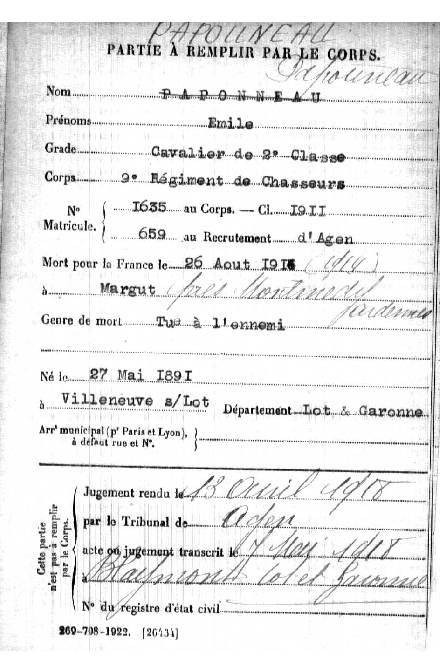 PAPOUNEAU
PARTIE À REMPLIR PAR LE CORPS.
Papouneau
Nom PAPONNEAU
Prénoms Emile
Grade Cavalier de 2e Classe
Corps 9e Régiment de Chasseurs
No Matricule. { 1635 au Corps. — Cl. 1911
659 au Recrutement d'Agen
Mort pour la France le 26 Aout 1914 (1914)
à Margut près Montmedy
Ardennes
Genre de mort Tué à l'ennemi
Né le 27 Mai 1891
à Villeneuve s/Lot Département Lot & Garonne
Arrt municipal (pr Paris et Lyon), à défaut rue et No. }
Cette partie n'est pas à remplir par le Corps.
Jugement rendu le 13 Avril 1918
par le Tribunal de Agen
acte ou jugement transcrit le 7 Mai 1918
à Blaymont Lot et Garonne
No du registre d'état civil
269-708-1922. [26434]